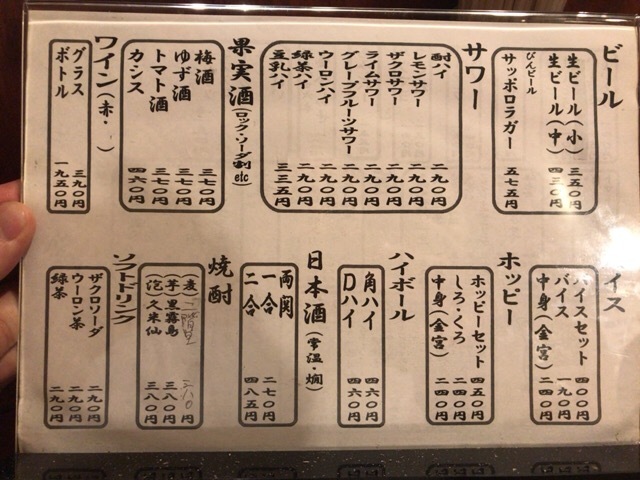 ビール
生ビール(小) 三五〇円
生ビール(中) 四三〇円
びんビール
サッポロラガー 五七五円
サワー
酎ハイ 二九〇円
レモンサワー 二九〇円
ザクロサワー 二九〇円
ライムサワー 二九〇円
グレープフルーツサワー 二九〇円
ウーロンハイ 二九〇円
緑茶ハイ 二九〇円
豆乳ハイ 三三五円
果実酒(ロック・ソーダ割etc)
梅酒 三七〇円
ゆず酒 三七〇円
トマト酒 三七〇円
カシス 四六〇円
ワイン(赤・ )
グラス 三九〇円
ボトル 一九五〇円
イス
バイスセット 四〇〇円
バイス 一九〇円
中身(金宮) 二四〇円
ホッピー
ホッピーセット 四五〇円
しろ・くろ 二四〇円
中身(金宮) 二四〇円
ハイボール
角ハイ 四六〇円
Dハイ 四六〇円
日本酒(常温・燗)
両関
一合 二七〇円
二合 四八五円
焼酎
(麦) 円
(芋)黒霧島 三八〇円
(泡)久米仙 三八〇円
ソフトドリンク
ザクロソーダ 二九〇円
ウーロン茶 二九〇円
緑茶 二九〇円